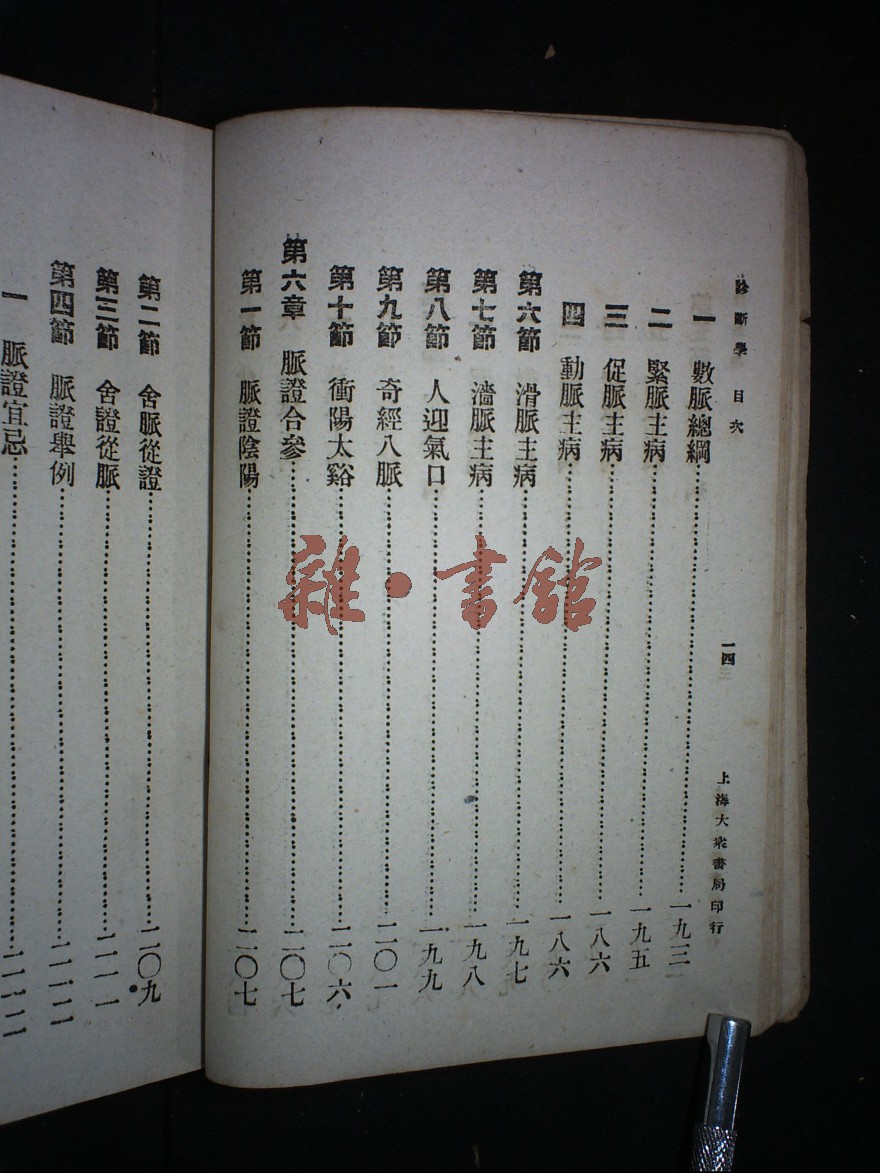 診斷學 目次 一四 上海大衆書局印行
一 數脈總綱 一九三
二 緊脈主病 一九五
三 促脈主病 一八六
四 動脈主病 一八六
第六節 滑脈主病 一九七
第七節 濇脈主病 一九八
第八節 人迎氣口 一九九
第九節 奇經八脈 二〇一
第十節 衝陽太谿 二〇六
第六章 脈證合參 二〇七
第一節 脈證陰陽 二〇七
第二節 舍脈從證 二〇九
第三節 舍證從脈 二一一
第四節 脈證舉例 二一二
一 脈證宜忌 二一二
雜·書館